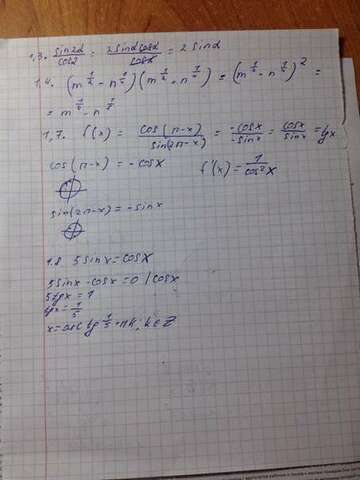 1,3. sin2α/cosα = 2sinα cosα/cosα = 2 sinα
1.4. (m^1/2 - n^1/2)(m^1/2 - n^1/2) = (m^1/2 - n^1/2)^2 =
= m^1/2 - n^1/2
1,7. f(x) = cos(π-x)/sin(2π-x) = -cosx/-sinx = cosx/sinx = tgx
cos(π-x) = -cosx f'(x) = 1/cos²x
sin(2π-x) = -sinx
1.8 5sinx = cosx
5sinx - cosx = 0 /cosx
5tgx = 1
tgx = 1/5
x = arctg 1/5 + πk, k∈Z